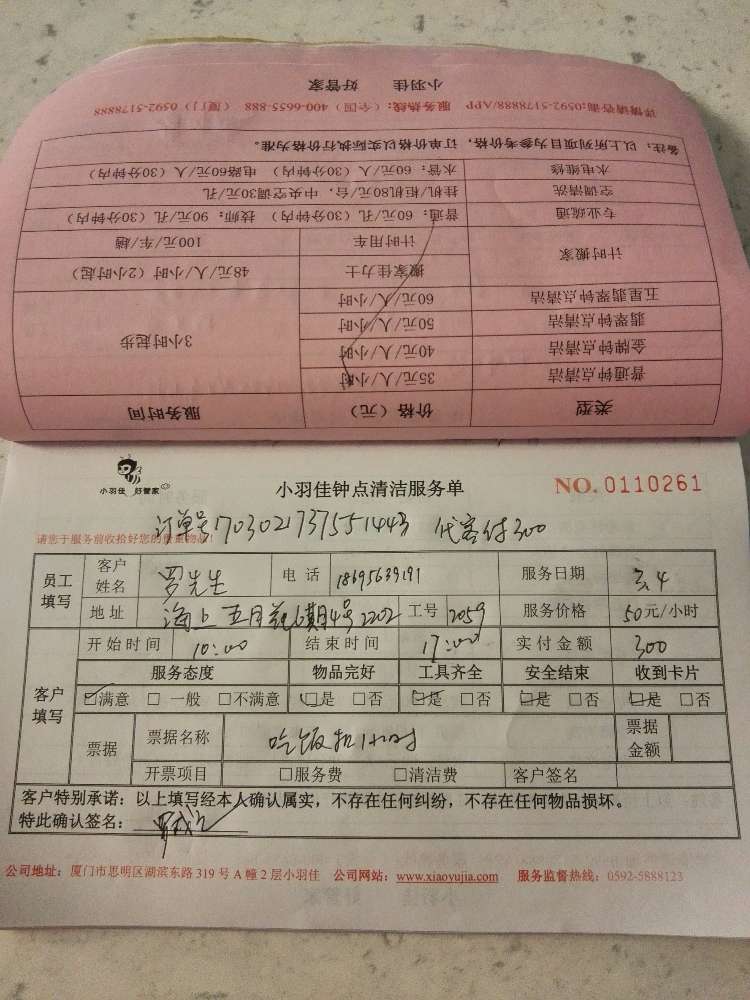 小羽佳 好管家
详情请咨询:0592-5178888/APP 服务热线:400-6655-888（全国）0592-5178888（厦门）
备注:以上所列项目为参考价格,订单价格以实际执行价格为准。
水电维修 水管:60元/人（30分钟内） 电路60元/人（30分钟内）
空调清洗 挂机/柜机80元/台,中央空调30元/孔
专业疏通 普通:60元/孔（30分钟内） 技师:90元/孔（30分钟内）
计时搬家 计时用车 100元/车/趟
搬家佳力士 48元/人/小时（2小时起）
五星翡翠钟点清洁 60元/人/小时
翡翠钟点清洁 50元/人/小时 3小时起步
金牌钟点清洁 40元/人/小时
普通钟点清洁 35元/人/小时
类型 价格（元） 服务时间
小羽佳 好管家
小羽佳钟点清洁服务单 NO.0110261
订单号17030217375514443 代客付300
请您于服务前收拾好您的贵重物品!
员工填写 客户姓名 罗先生 电话 18695639191 服务日期 3.4
地址 海上五月花6期4号2202 工号 2059 服务价格 50元/小时
开始时间 10:00 结束时间 17:00 实付金额 300
客户填写 服务态度 物品完好 工具齐全 安全结束 收到卡片
☑满意 □一般 □不满意 ☑是 □否 ☑是 □否 ☑是 □否 ☑是 □否
票据 票据名称 吃饭扣1小时 票据金额
开票项目 □服务费 □清洁费 客户签名
客户特别承诺:以上填写经本人确认属实,不存在任何纠纷,不存在任何物品损坏。
特此确认签名:
公司地址:厦门市思明区湖滨东路319号A幢2层小羽佳 公司网站:www.xiaoyujia.com 服务监督热线:0592-5888123